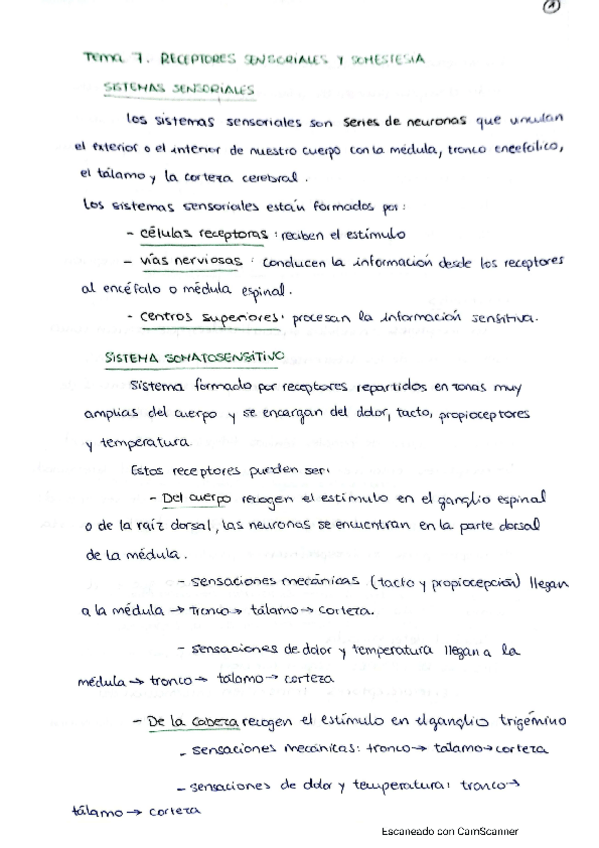 1
Tema 7. RECEPTORES SENSORIALES Y SOMESTESIA
SISTEMAS SENSORIALES
los sistemas sensoriales son series de neuronas que vinculan
el exterior o el interior de nuestro cuerpo con la médula, tronco encefálico,
el tálamo y la corteza cerebral.
Los sistemas sensoriales están formados por:
- células receptoras: reciben el estímulo
- vías nerviosas: conducen la información desde los receptores
al encéfalo o médula espinal.
- centros superiores: procesan la información sensitiva.
SISTEMA SOMATOSENSITIVO
Sistema formado por receptores repartidos en zonas muy
amplias del cuerpo y se encargan del dolor, tacto, propioceptores
y temperatura.
Estos receptores pueden ser:
- Del cuerpo recogen el estímulo en el ganglio espinal
o de la raíz dorsal, las neuronas se encuentran en la parte dorsal
de la médula.
- sensaciones mecánicas (tacto y propiocepción) llegan
a la médula → Tronco → tálamo → corteza.
- sensaciones de dolor y temperatura llegan a la
médula → tronco → talamo → corteza
- De la cabeza recogen el estímulo en el ganglio trigémino
- sensaciones mecánicas: tronco → talamo → corteza
- sensaciones de dolor y temperatura: tronco →
tálamo → corteza
Escaneado con CamScanner